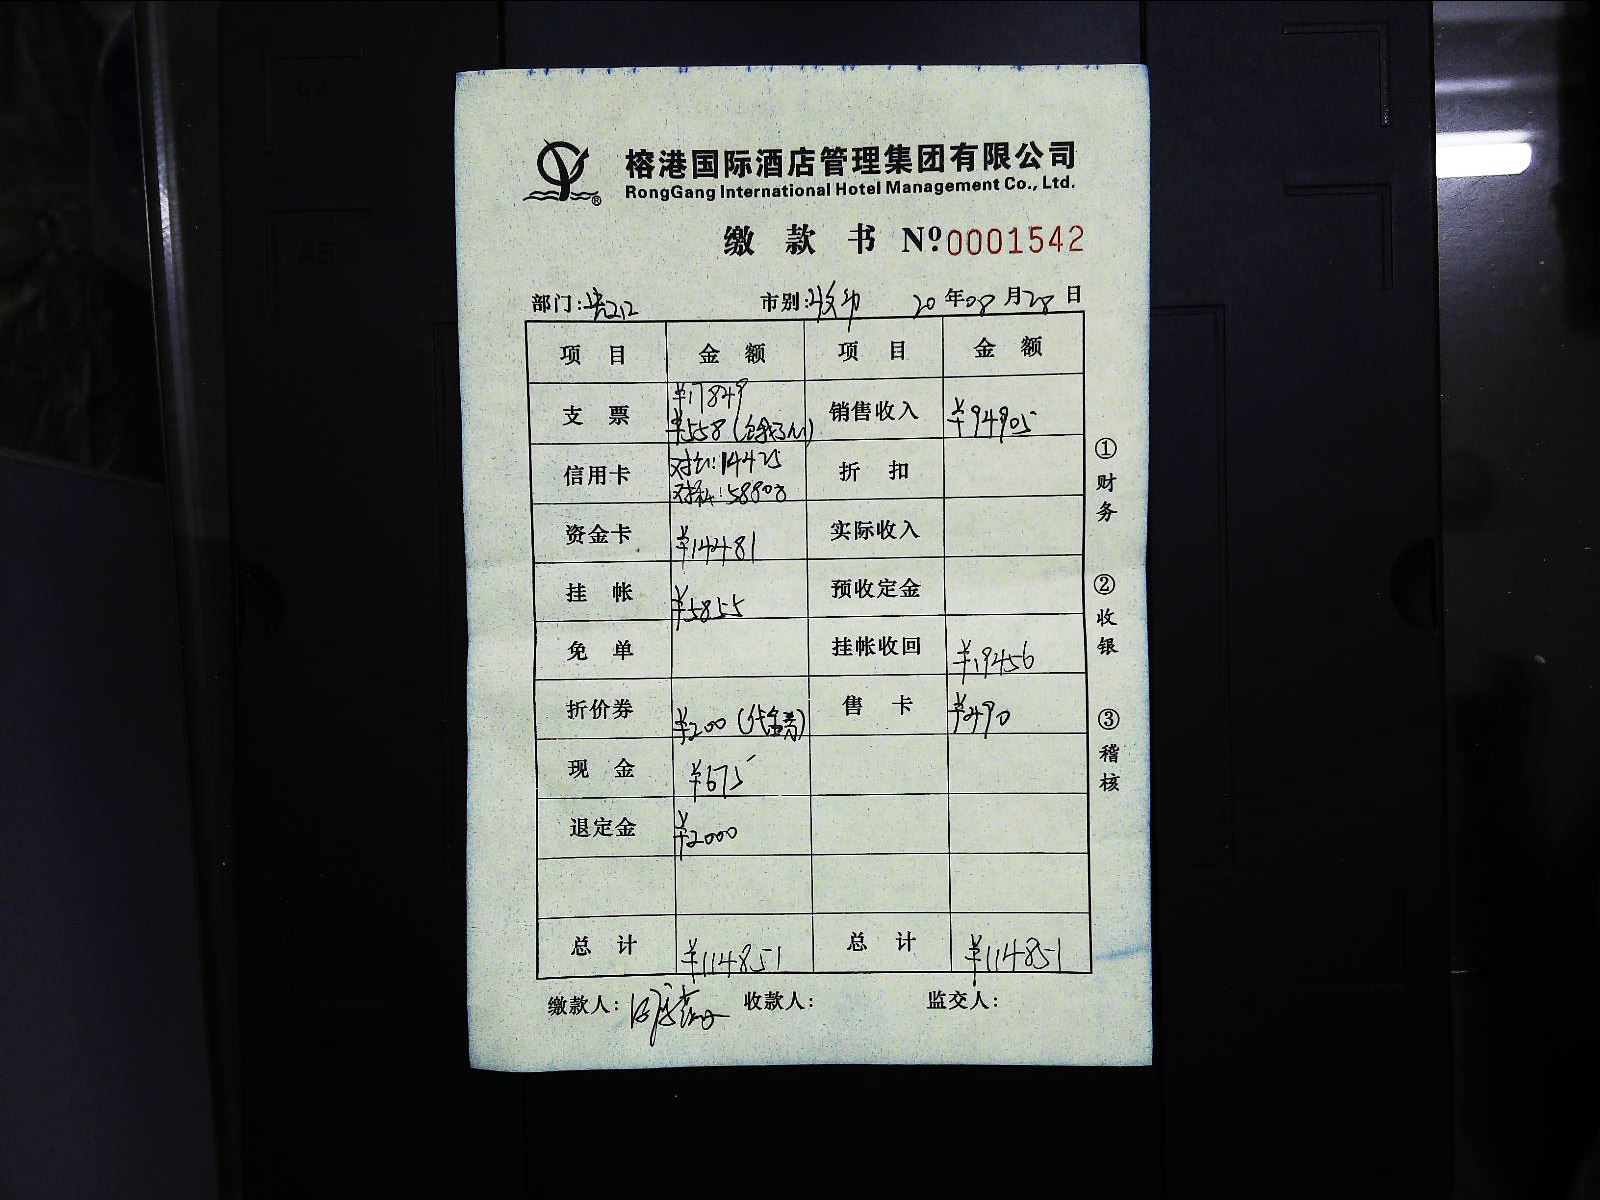 榕港国际酒店管理集团有限公司
RongGang International Hotel Management Co., Ltd.
缴 款 书 Nº 0001542
部门: 市别: 20 年 08 月 28 日
项 目 金 额 项 目 金 额
支 票 ¥17849 ¥558 销售收入 ¥94905
信用卡 14425 58808 折 扣
资金卡 ¥14481 实际收入
挂 帐 ¥5855 预收定金
免 单 挂帐收回 ¥19456
折价券 ¥200 (代金券) 售 卡 ¥490
现 金 ¥675
退定金 ¥2000
总 计 ¥114851 总 计 ¥114851
缴款人: 收款人: 监交人:
①财务
②收银
③稽核
A4
A5